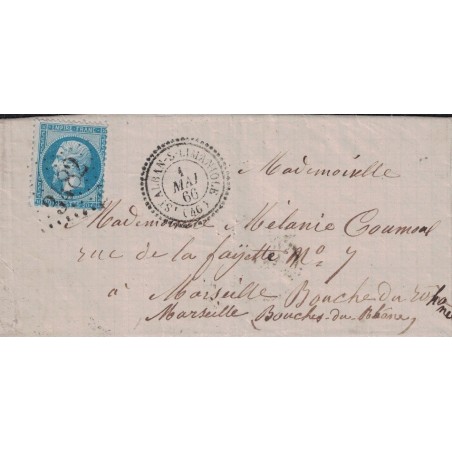 EMPIRE FRANC
ST ALBAN-S-LIMAGNOLE
1
MAI
66
(46)
Mademoiselle
Mademoiselle Mélanie
rue de la fayette No 7
à Marseille Bouche du Rhône
Marseille Bouches-du-Rhône